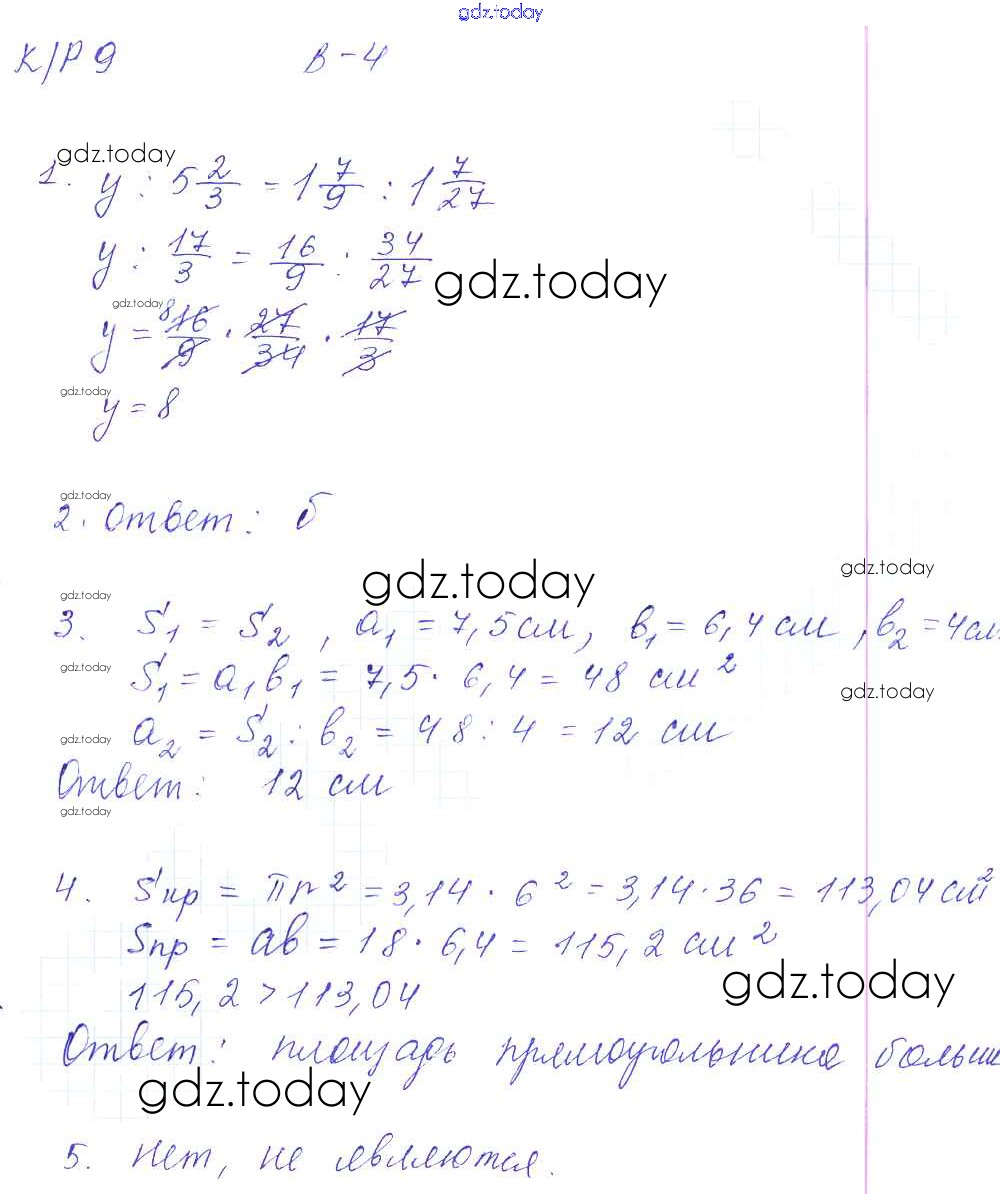 gdz.today
К/Р 9 В-4
gdz.today
1. y : 5 2/3 = 1 7/9 : 1 7/27
y : 17/3 = 16/9 : 34/27
gdz.today
gdz.today
y = 8 16/9 · 27/34 · 17/3
gdz.today
y = 8
gdz.today
2. Ответ: б
gdz.today
gdz.today
gdz.today
3. S₁ = S₂, a₁ = 7,5 см, в₁ = 6,4 см, в₂ = 4 см
gdz.today
S₁ = a₁в₁ = 7,5 · 6,4 = 48 см²
gdz.today
gdz.today
a₂ = S₂ : в₂ = 48 : 4 = 12 см
Ответ: 12 см
gdz.today
4. Sкр = πr² = 3,14 · 6² = 3,14 · 36 = 113,04 см²
Sпр = aв = 18 · 6,4 = 115,2 см²
gdz.today
115,2 > 113,04
Ответ: площадь прямоугольника больше
gdz.today
5. Нет, не являются.